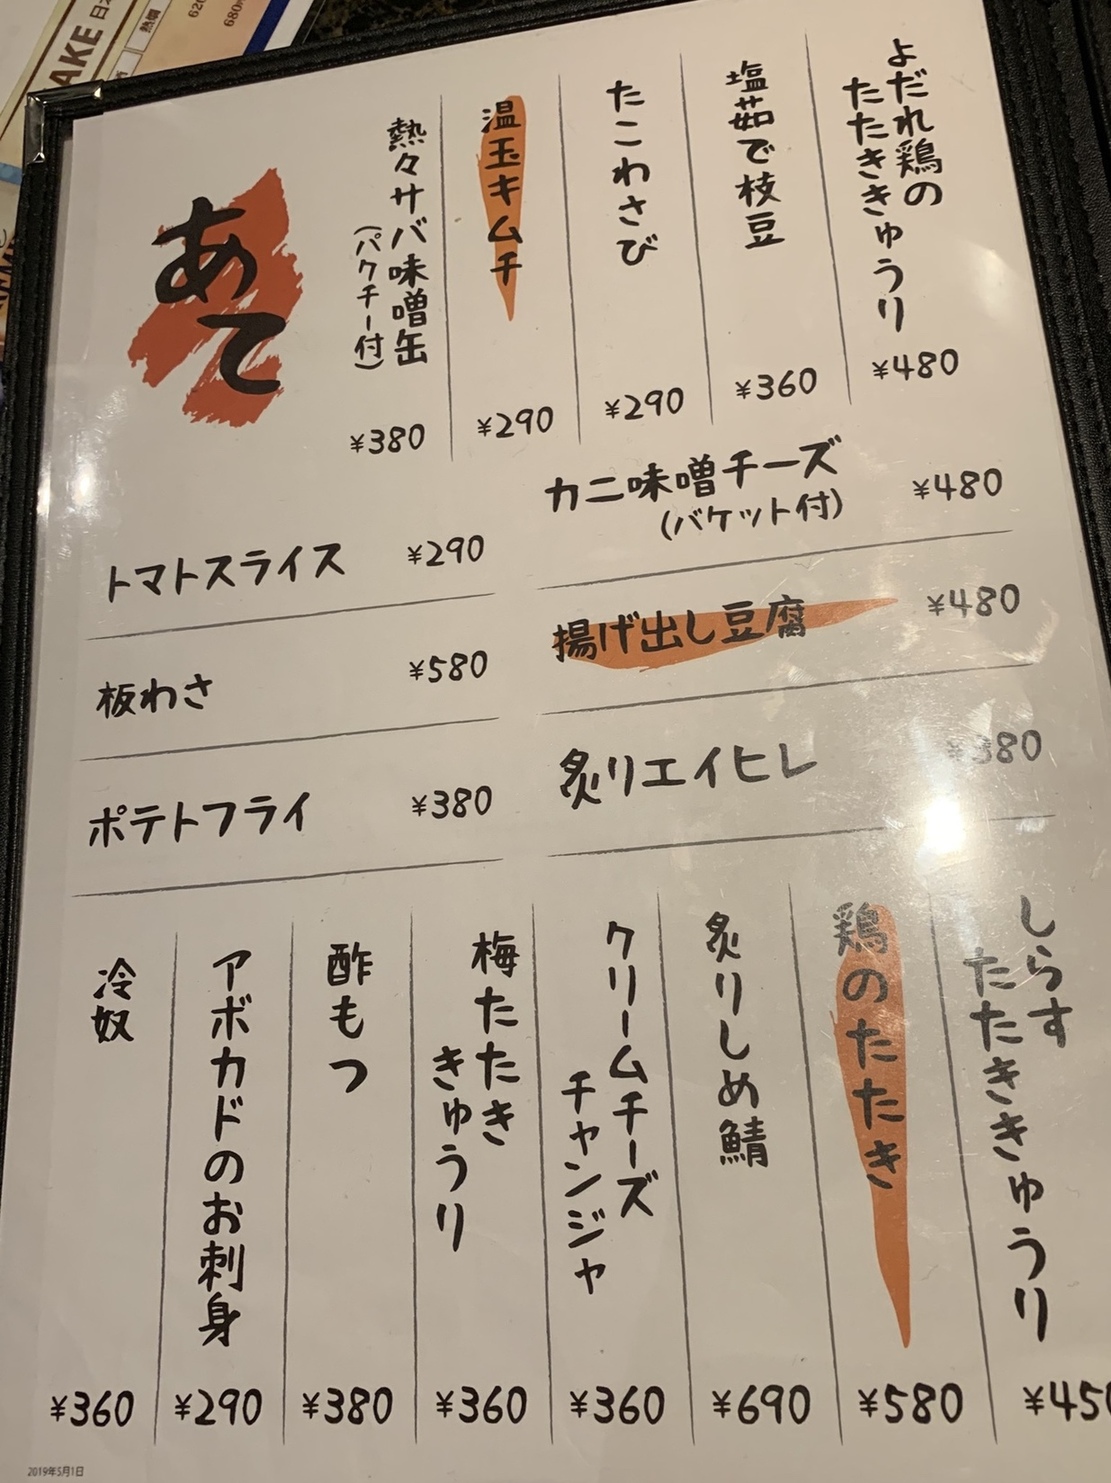 あて
よだれ鶏の
たたききゅうり
¥480
塩茹で枝豆
¥360
たこわさび
¥290
温玉キムチ
¥290
熱々サバ味噌缶
(パクチー付)
¥380
カニ味噌チーズ
(バケット付)
¥480
揚げ出し豆腐
¥480
炙りエイヒレ
¥380
トマトスライス
¥290
板わさ
¥580
ポテトフライ
¥380
しらす
たたききゅうり
¥450
鶏のたたき
¥580
炙りしめ鯖
¥690
クリームチーズ
チャンジャ
¥360
梅たたき
きゅうり
¥360
酢もつ
¥380
アボカドのお刺身
¥290
冷奴
¥360
2019年5月1日
AKE
熱燗
680